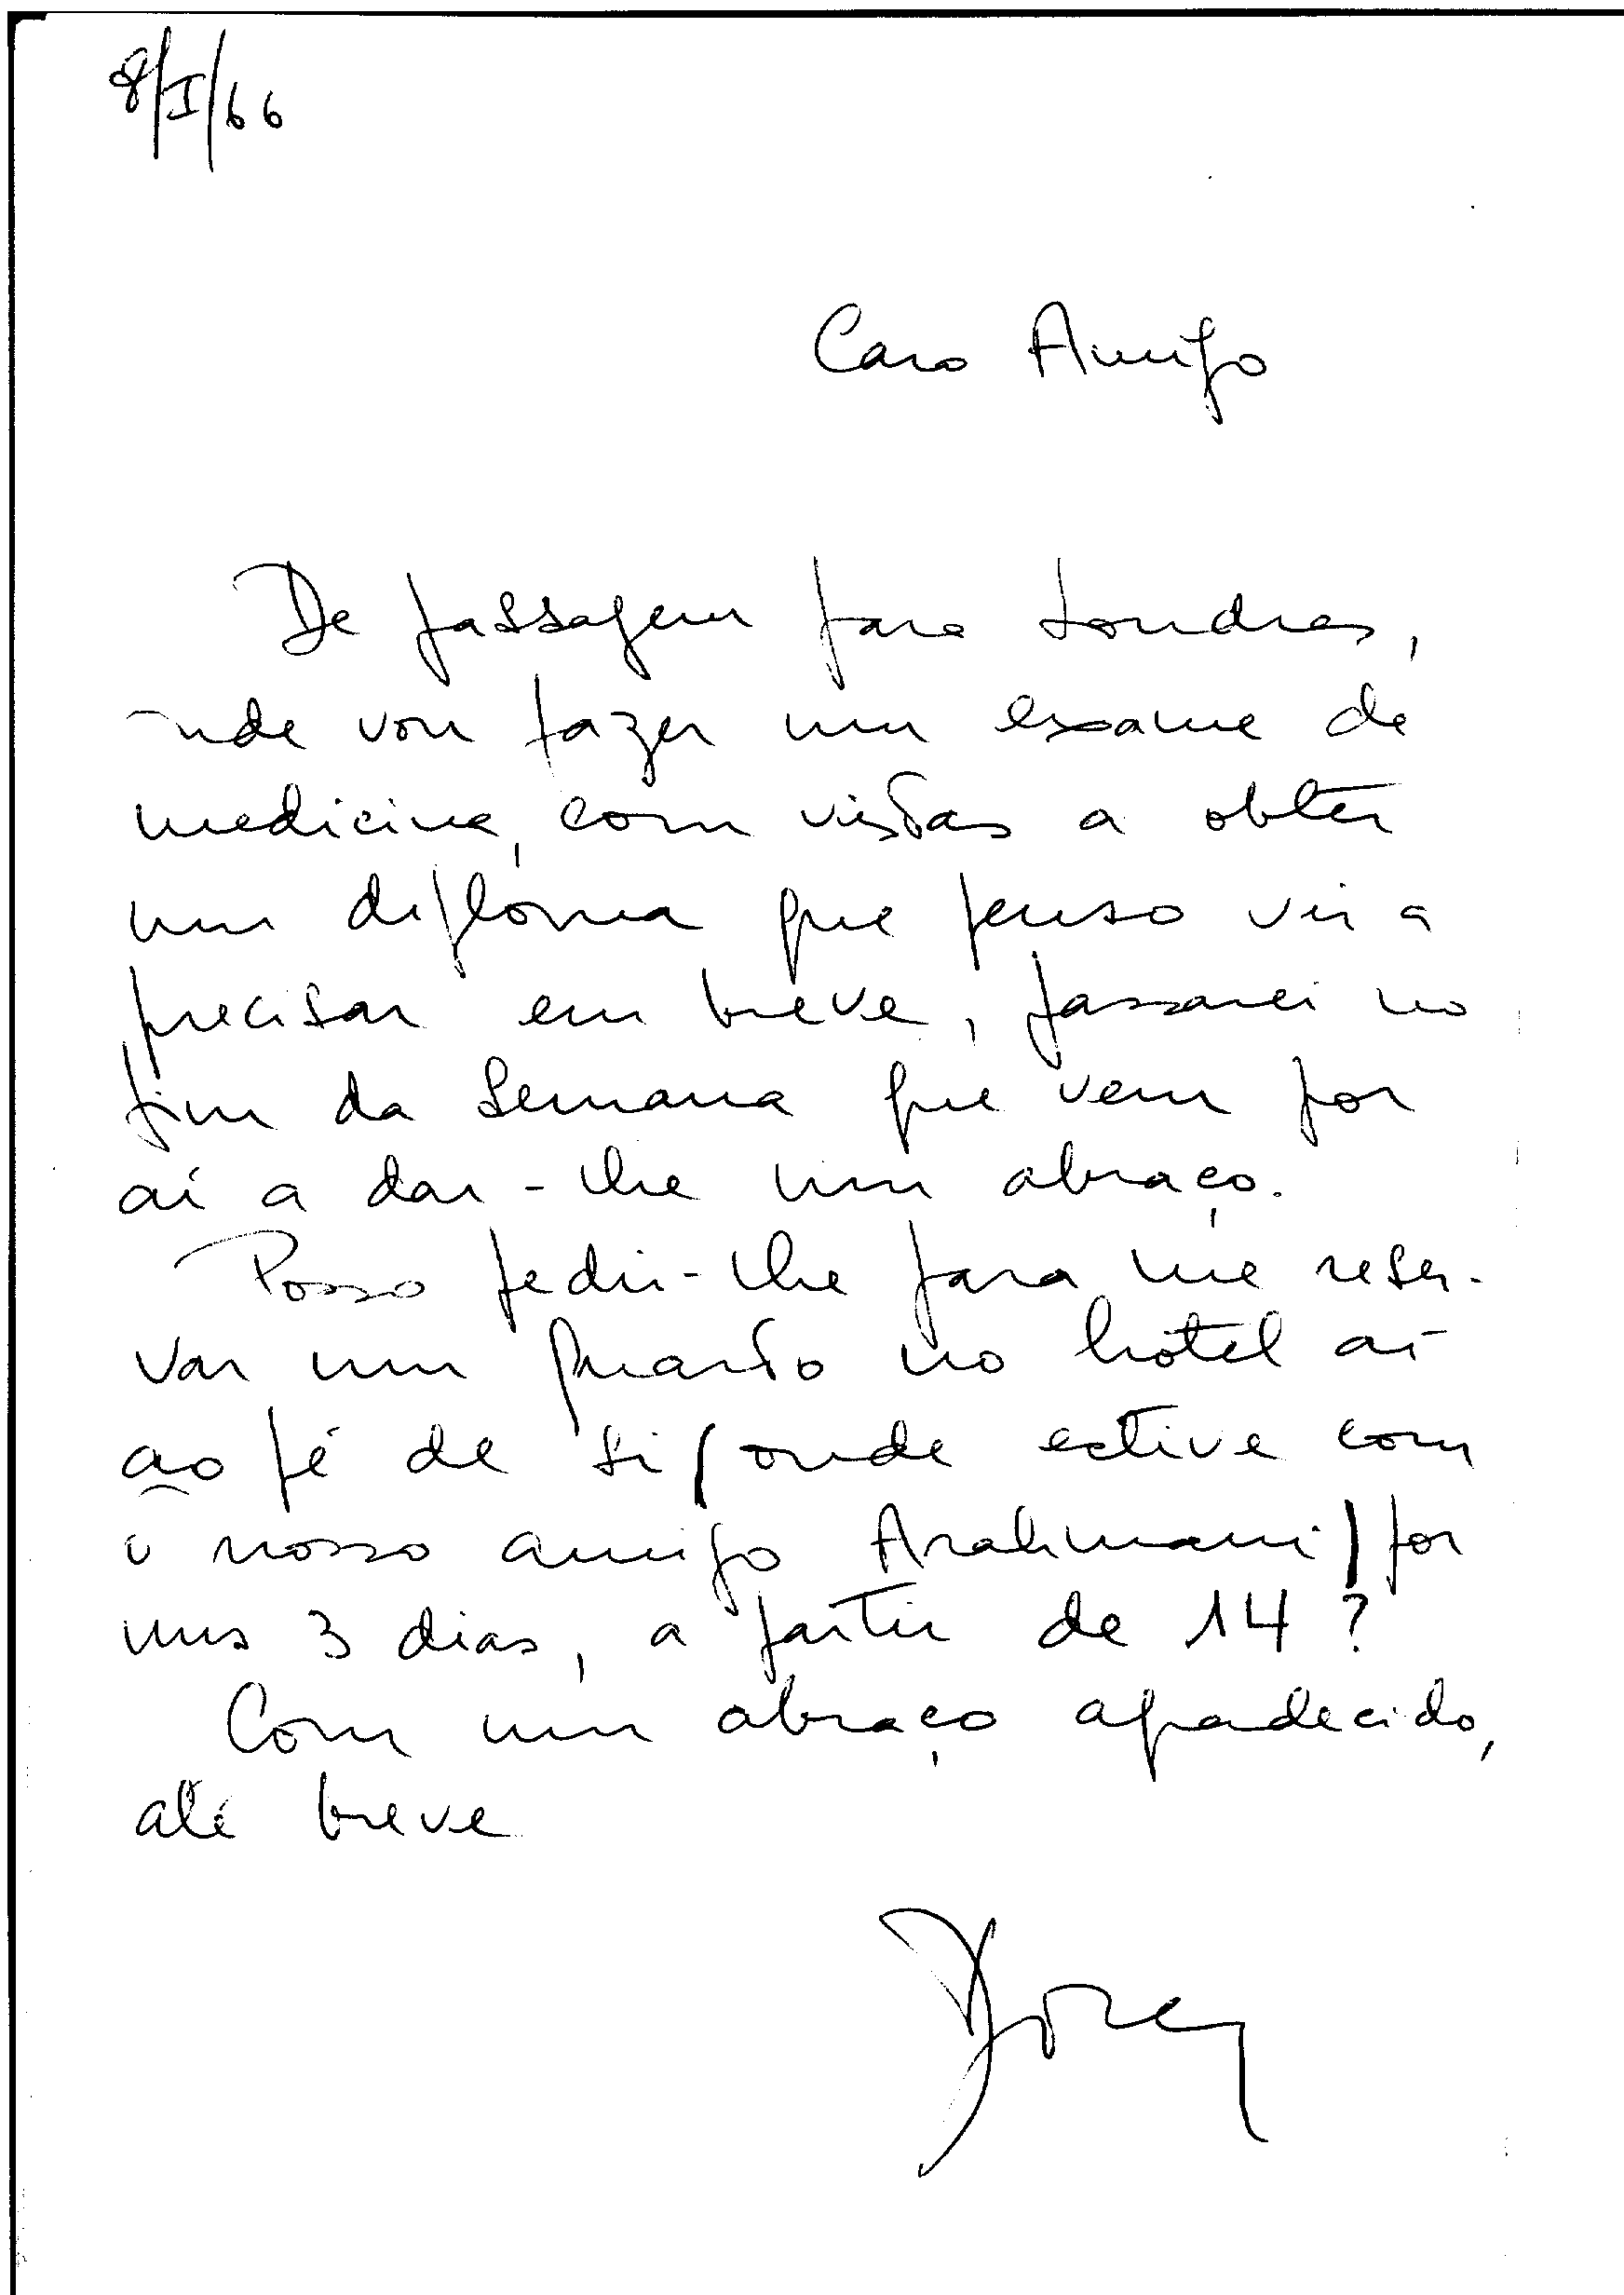 8/I/66
Caro Amigo
De passagem para Londres,
onde vou fazer um exame de
medicina, com vistas a obter
um diplôma que penso vir a
precisar em breve, passarei no
fim da semana que vem por
aí a dar-lhe um abraço.
Posso pedir-lhe para me reser-
var um quarto no hotel aí
ao pé de si (onde estive com
o nosso amigo Arahmani) por
uns 3 dias, a partir de 14?
Com um abraço agradecido,
até breve